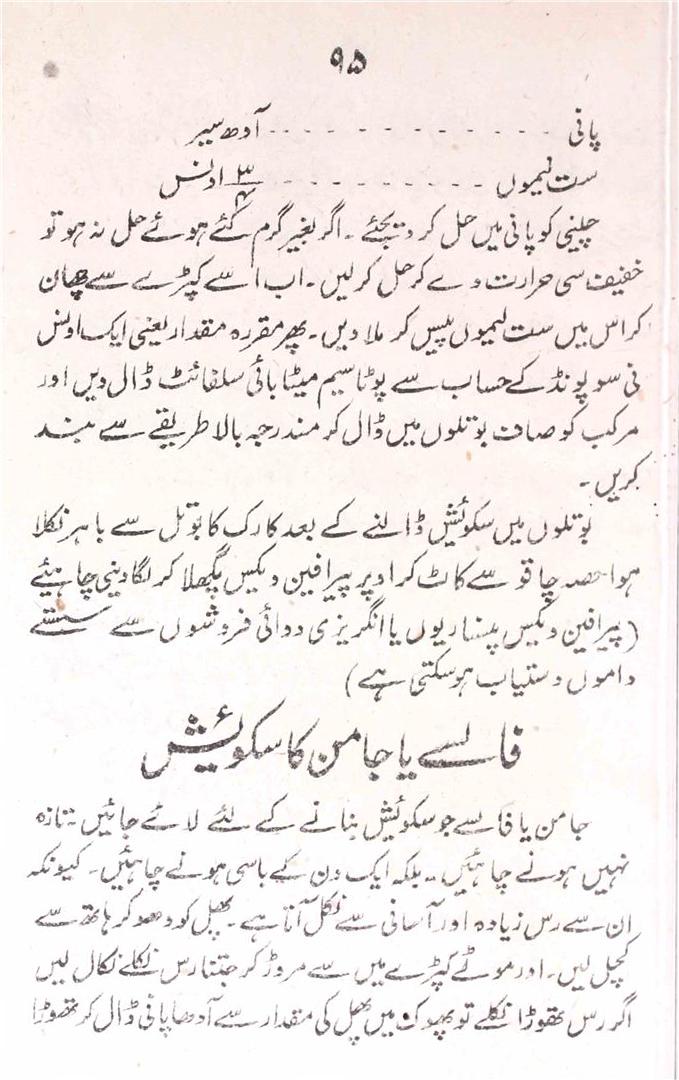 ۹۵
پانی - - - - - - - - - - - آدھ سیر
ست لیموں - - - - - - - - - - ۳/۴ اونس
چینی کو پانی میں حل کر دیجئے۔ اگر بغیر گرم کئے ہوئے حل نہ ہو تو
خفیف سی حرارت دے کر حل کر لیں۔ اب اسے کپڑے سے چھان
کر اس میں ست لیموں پیس کر ملا دیں۔ پھر مقررہ مقدار یعنی ایک اونس
فی سو پونڈ کے حساب سے پوٹاسیم میٹا بائی سلفائٹ ڈال دیں اور
مرکب کو صاف بوتلوں میں ڈال کر مندرجہ بالا طریقے سے بند
کریں۔
بوتلوں میں سکوئش ڈالنے کے بعد کارک کا بوتل سے باہر نکلا
ہوا حصہ چاقو سے کاٹ کر اوپر پیرافین ویکس پگھلا کر لگا دینی چاہیئے
(پیرافین ویکس پنساریوں یا انگریزی دوائی فروشوں سے سستے
داموں دستیاب ہو سکتی ہے)
فالسے یا جامن کا سکوئیش
جامن یا فالسے جو سکوئش بنانے کے لئے لائے جائیں۔ تازہ
نہیں ہونے چاہئیں۔ بلکہ ایک دن کے باسی ہونے چاہئیں۔ کیونکہ
ان سے رس زیادہ اور آسانی سے نکل آتا ہے۔ پھل کو دھو کر ہاتھ سے
کچل لیں۔ اور موٹے کپڑے میں سے مروڑ کر جتنا رس نکلے نکال لیں
اگر رس تھوڑا نکلے تو پھوک میں پھل کی مقدار سے آدھا پانی ڈال کر تھوڑا